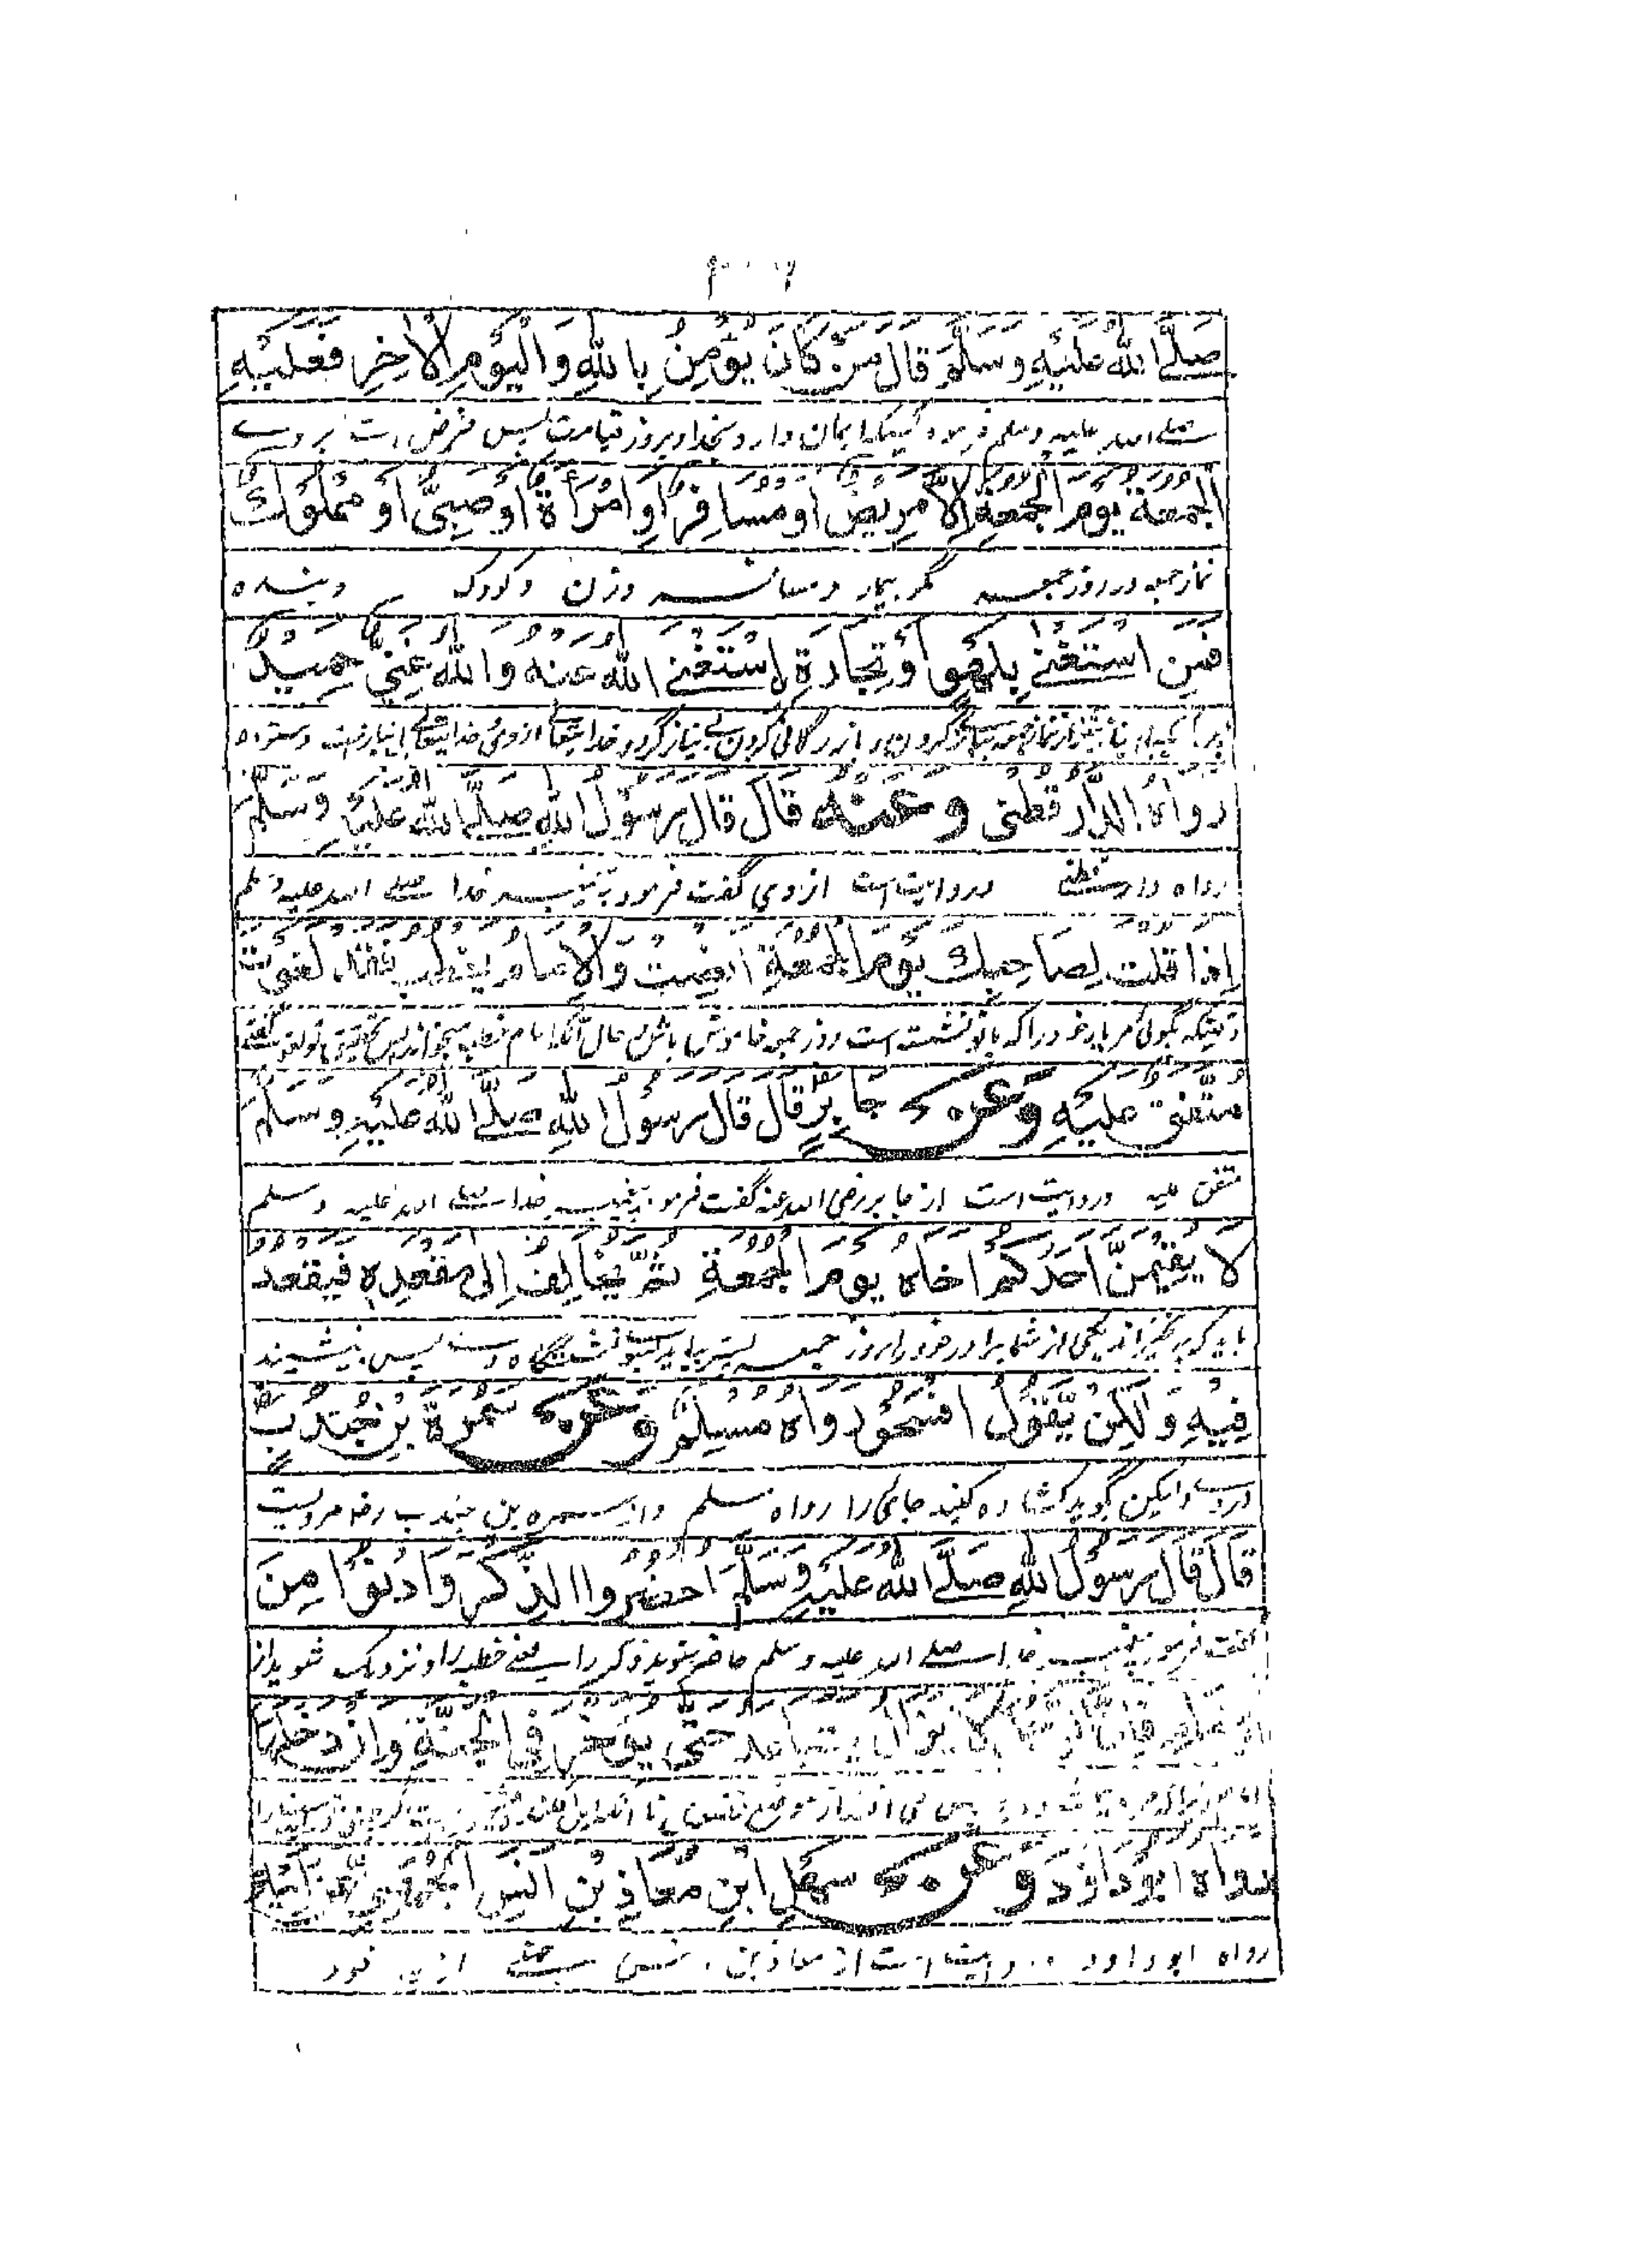 صَلَّے اللهُ عَلَيْهِ وَسَلَّمَ قَالَ مَنْ كَانَ يُؤْمِنُ بِاللهِ وَالْيَوْمِ الْآخِرِ فَعَلَيْهِ
صلے الله علیه وسلم فرمود کسیکه ایمان دارد بخدا و بروز قیامت پس فرض است بر وے
الْجُمُعَةُ يَوْمَ الْجُمُعَةِ إِلَّا مَرِيْضٌ اَوْ مُسَافِرٌ اَوِ امْرَأَةٌ اَوْ صَبِيٌّ اَوْ مَمْلُوْكٌ
نماز جمعه در روز جمعه مگر بیمار و مسافر وزن و کودک و بنده
فَمَنِ اسْتَغْنٰے بِلَهْوٍ اَوْ تِجَارَةٍ اِسْتَغْنَے اللهُ عَنْهُ وَاللهُ غَنِيٌّ حَمِيْدٌ
رَوَاهُ الدَّارَقُطْنی وَعَنْهُ قَالَ قَالَ رَسُوْلُ اللهِ صَلَّے اللهُ عَلَيْهِ وَسَلَّمَ
رواه دارقطنے و روایت است از وی گفت فرمود پیغمبر خدا صلے الله علیه وسلم
اِذَا قُلْتَ لِصَاحِبِكَ يَوْمَ الْجُمُعَةِ اَنْصِتْ وَالْاِمَامُ يَخْطُبُ فَقَدْ لَغَوْتَ
وقتیکه بگوئی مر یار خود را که با تو نشسته است روز جمعه خاموش باش و حال آنکه امام خطبه میخواند پس تحقیق تو لغو گفتے
مُتَّفَقٌ عَلَيْهِ وَعَنْ جَابِرٍ قَالَ قَالَ رَسُوْلُ اللهِ صَلَّے اللهُ عَلَيْهِ وَسَلَّمَ
متفق علیه و روایت است از جابر رضی الله عنه گفت فرمود پیغمبر خدا صلے الله علیه وسلم
لَا يُقِيْمَنَّ اَحَدُكُمْ اَخَاهُ يَوْمَ الْجُمُعَةِ ثُمَّ يُخَالِفُ اِلٰى مَقْعَدِهِ فَيَقْعُدُ
باید که برنخیزاند یکی از شما برادر خود را روز جمعه پستر بیاید بسوے نشستگاه وے پس بنشیند
فِيْهِ وَلٰكِنْ يَّقُوْلُ افْسَحُوْا رَوَاهُ مُسْلِمٌ وَعَنْ سَمُرَةَ بْنِ جُنْدُبٍ
در وے ولیکن گوید کشاده کنید جای را رواه مسلم و از سمره بن جندب رضه مرویست
قَالَ قَالَ رَسُوْلُ اللهِ صَلَّے اللهُ عَلَيْهِ وَسَلَّمَ احْضُرُوا الذِّكْرَ وَادْنُوْا مِنَ
گفت فرمود پیغمبر خدا صلے الله علیه وسلم حاضر شوید ذکر را یعنے خطبه را و نزدیک شوید از
لَا يَزَالُ يَتَبَاعَدُ حَتّٰى يُؤَخَّرَ فِي الْجَنَّةِ وَاِنْ دَخَلَهَا
رَوَاهُ اَبُوْ دَاؤدَ وَعَنْ سَهْلِ ابْنِ مُعَاذِ بْنِ اَنَسٍ الْجُهَنِيِّ عَنْ اَبِيْهِ
رواه ابو داود روایت است از معاذ بن انس جهنے از پدر خود